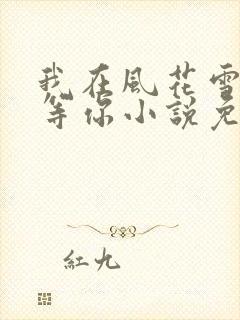 我在風花雪
等你小說免
紅九